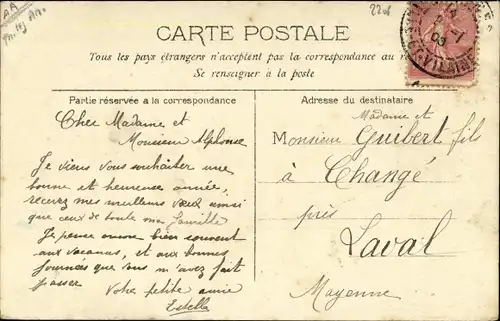 2206
CARTE POSTALE
Tous les pays étrangers n'acceptent pas la correspondance au
Se renseigner à la poste
Partie réservée a la correspondance
Cher Madame et
Monsieur Alphonse
Je viens vous souhaiter une
bonne et heureuse année,
recevez mes meilleurs vœux ainsi
que ceux de toute ma famille
Je pense encore bien souvent
aux vacances, et aux bonnes
journées que vous m'avez fait
passer
Votre petite amie
Estella
Adresse du destinataire
Madame et
Monsieur Guibert fils
à Changé
près
Laval
Mayenne